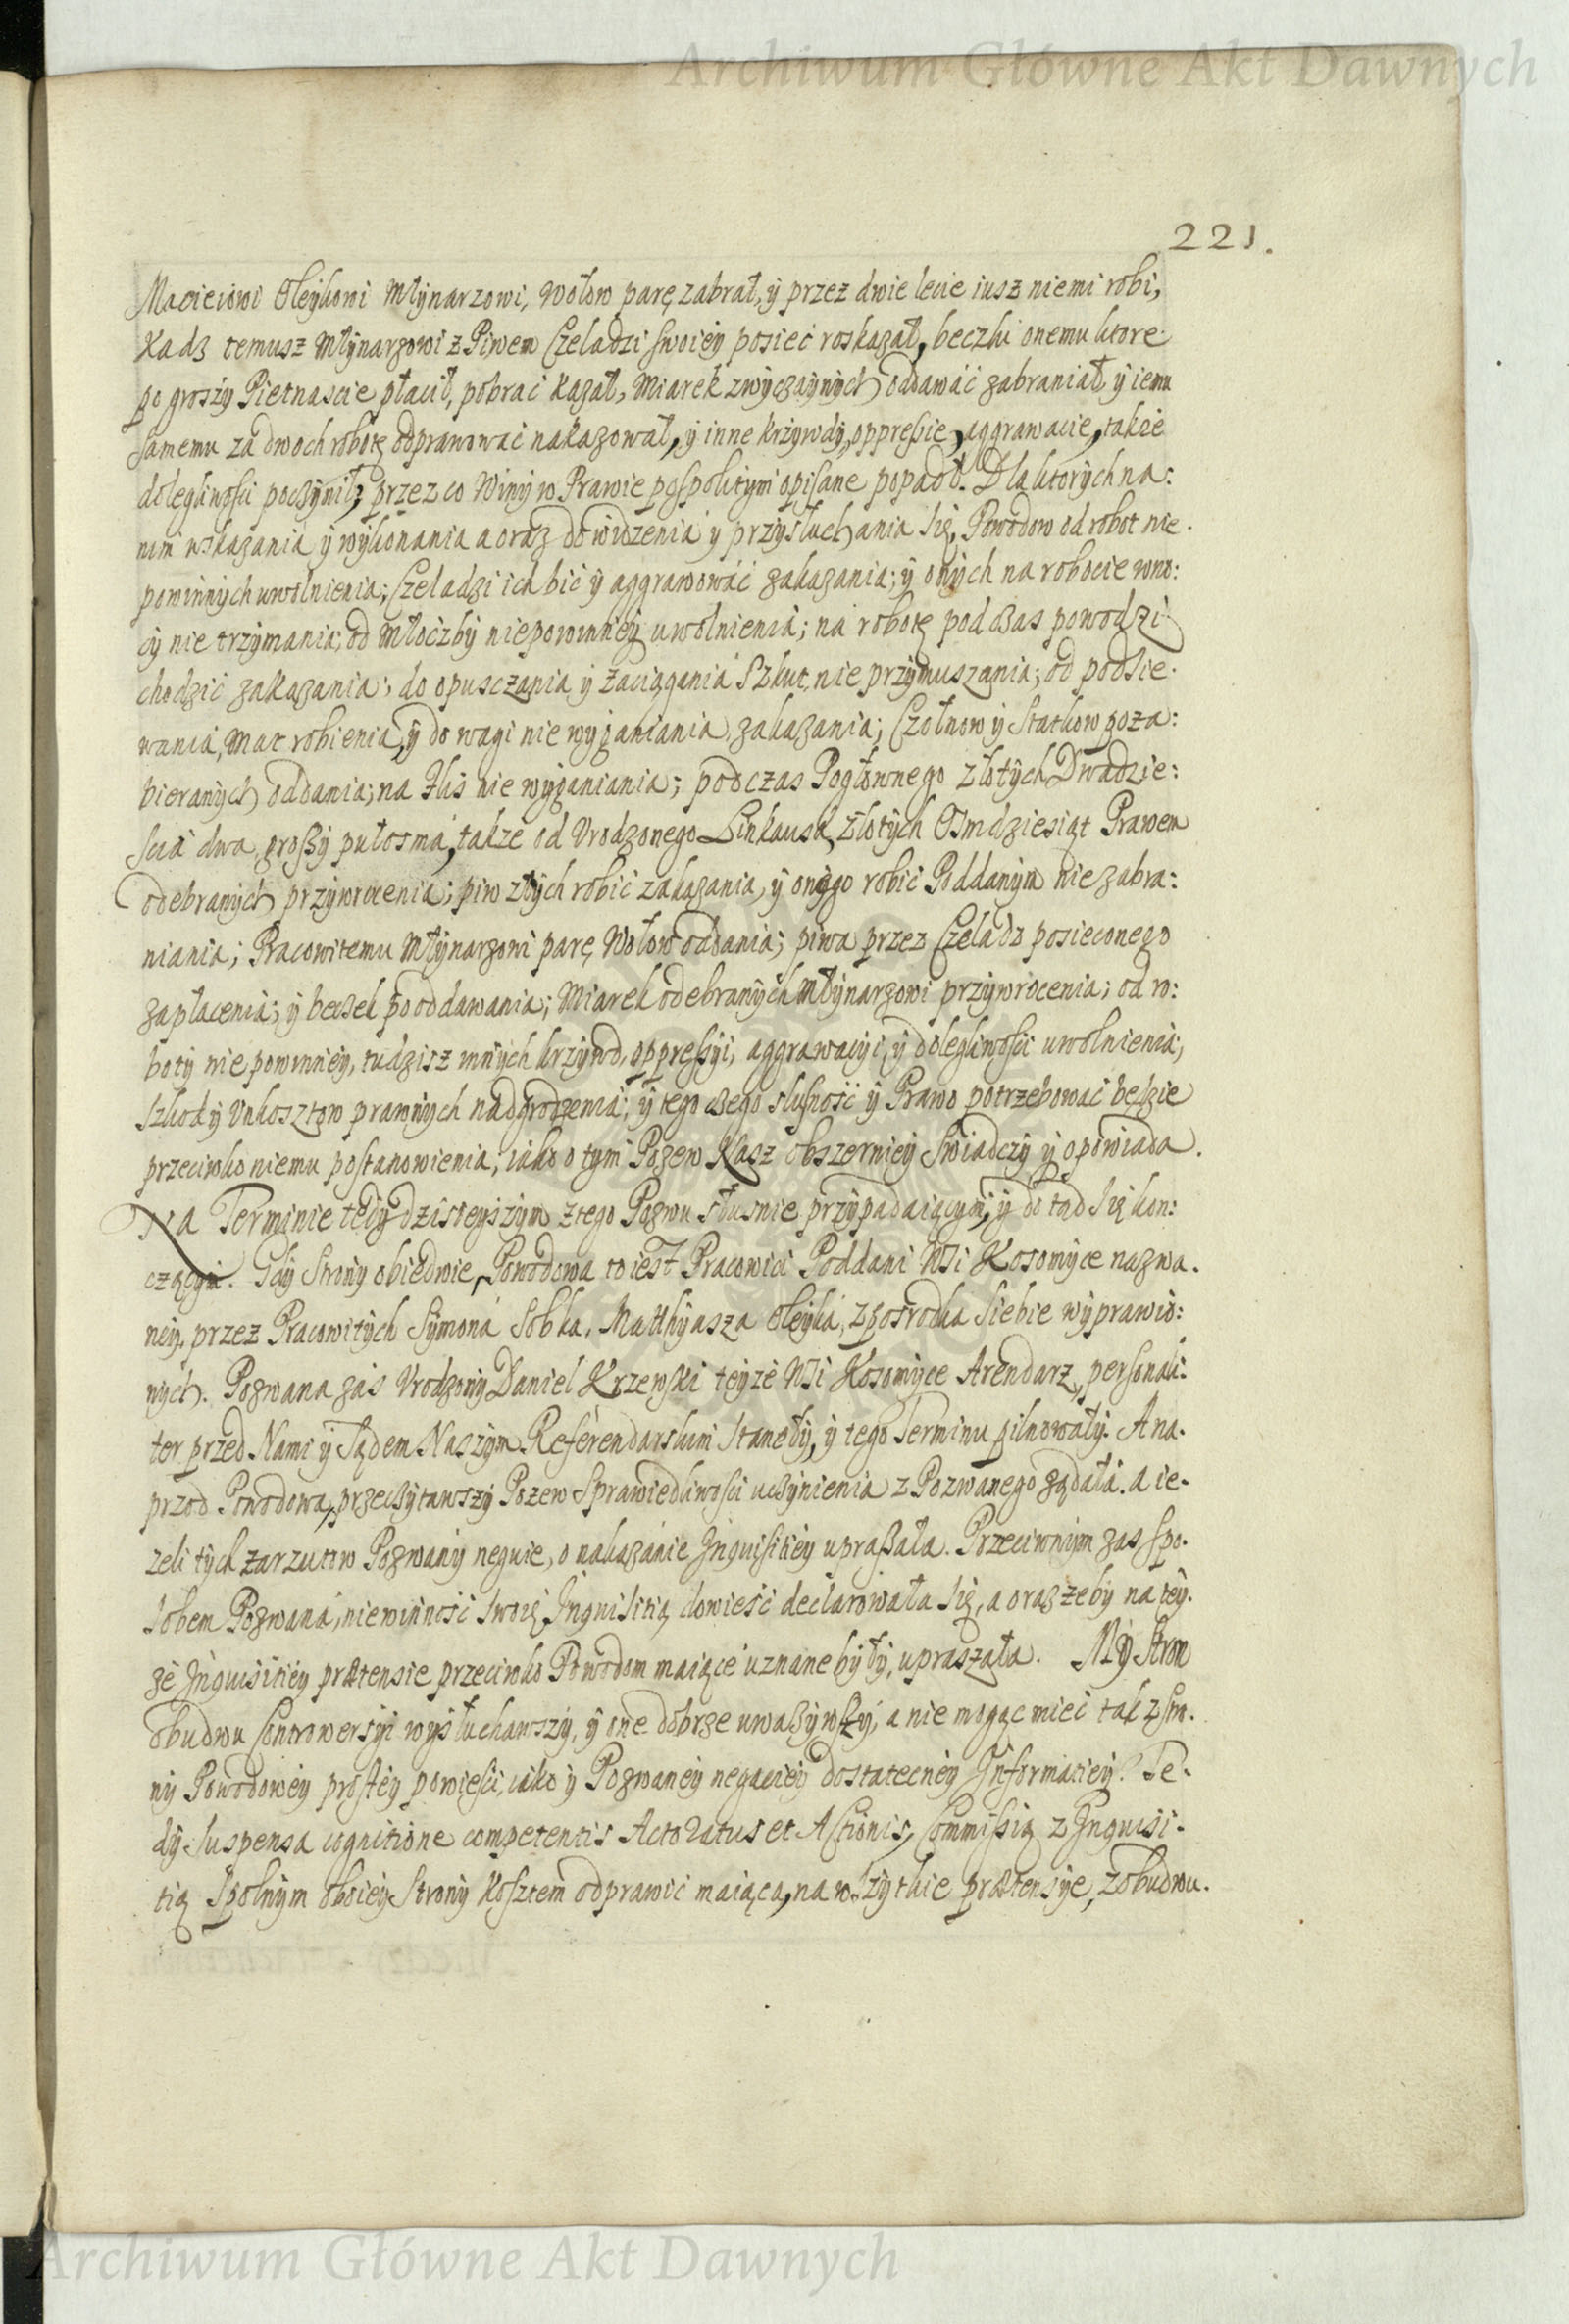 Archiwum Główne Akt Dawnych
221.
Macieiowi Oleykowi Młynarzowi, Wołow parę zabrał, y przez dwie lecie iusz niemi robi,
Kadz temusz Młynarzowi z Piwem Czeladzi swoiey posieć roskazał, beczki onemu ktore
po groszy Pietnascie płacił, pobrać kazał, Miarek zwyczaynych oddawać zabraniał, y iemu
samemu za dwoch robotę odprawować nakazował, y inne krzywdy, oppressie, aggrawacie, takie
dolegliwości poczynił, przez co Winy w Prawie pospolitym opisane popadł. Dla ktorych na:
nim wskazania y wykonania a oraz do widzenia y przysłuchania się, Powodow od robot nie
powinnych uwolnienia; Czeladzi ich bić y aggrawować zakazania; y onych na robocie w no:
cy nie trzymania; od Młoćzby niepowinney uwolnienia; na robotę pod czas powodzi
chodzić zakazania; do opusczania y zaciągania Szkut, nie przymuszania; od podsie-
wania, Mat robienia, y do wagi nie wyganiania, zakazania; Czołnow y Statkow poza:
bieranych oddania; na Flis nie wyganiania; podczas Pogłownego złotych Dwadzie:
scia dwa, groszy pułosma, także od Vrodzonego Linkausa, złotych Osmdziesiąt Prawem
odebranych przywrocenia; piw złych robić zakazania, y onego robić Poddanym nie zabra:
niania; Pracowitemu Młynarzowi parę Wołow oddania; piwa przez Czeladz posieconego
zapłacenia; y beczek pooddawania; Miarek odebranych Młynarzowi przywrocenia; od ro:
boty nie powinney, tudzisz innych krzywd, oppressyi, aggrawacyi, y dolegliwości uwolnienia;
szkod y Vnkosztow prawnych nadgrodzenia; y tego czego słusność y Prawo potrzebować będzie
przeciwko niemu postanowienia, iako o tym Pozew Nasz obszerniey Swiadczy y opowiada.
Na Terminie tedy dzisieyszym z tego Pozwu słusnie przypadaiącym, y do tąd się kon:
czącym. Gdy Strony obiedwie, Powodowa to iest Pracowici Poddani Wsi Kosomyce nazwa-
ney, przez Pracowitych Symona Sobka, Matthyasza Oleyka, z posrodka siebie wyprawio:
nych. Pozwana zas Vrodzony Daniel Krzewski teyże Wsi Kosomyce Arendarz, personali-
ter przed Nami y Sądem Naszym Referendarskim stanęły, y tego Terminu pilnowały. A na-
przod Powodowa, przeczytawszy Pozew Sprawiedliwości uczynienia z Pozwanego żądała. a ie-
zeli tych zarzutow Pozwany neguie, o nakazanie Inquisitiey upraszała. Przeciwnym zas spo-
sobem Pozwana, niewinność swoię Inquisitią dowieść declarowała się, a oraz żeby na tey-
że Inquisitiey prætensie przeciwko Powodom maiące uznane były, upraszała. My Stron
obudwu Controwersyi wysłuchawszy, y one dobrze uważywszy, a nie mogąc mieć tak z Stro-
ny Powodowey prostey powieści, iako y Pozwaney negaciey dostateczney Informatiey. Te-
dy suspensa cognitione competentis Actoratus et Actionis, Commissią z Inquisi-
tią Spolnym oboiey Strony Kosztem odprawić maiącą, na wszytkie prætensye, z obudwu-
Archiwum Główne Akt Dawnych